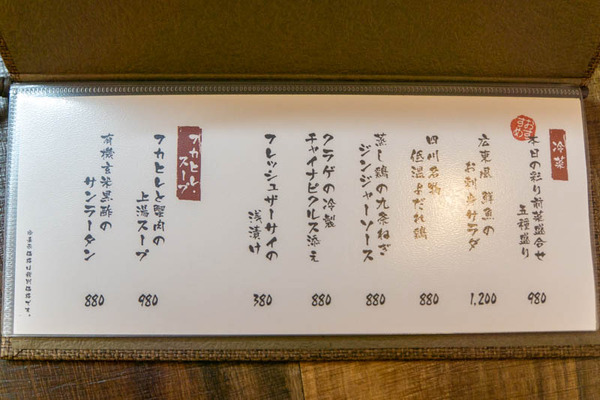 冷菜
おすすめ
本日の彩り前菜盛合せ
五種盛り
980
広東風 鮮魚の
お刺身サラダ
1,200
四川名物
低温よだれ鶏
880
蒸し鶏の九条ねぎ
ジンジャーソース
880
クラゲの冷製
チャイナピクルス添え
880
フレッシュザーサイの
浅漬け
380
フカヒレ
スープ
フカヒレと蟹肉の
上湯スープ
980
有機玄米黒酢の
サンラータン
880
※表示価格は税別価格です。